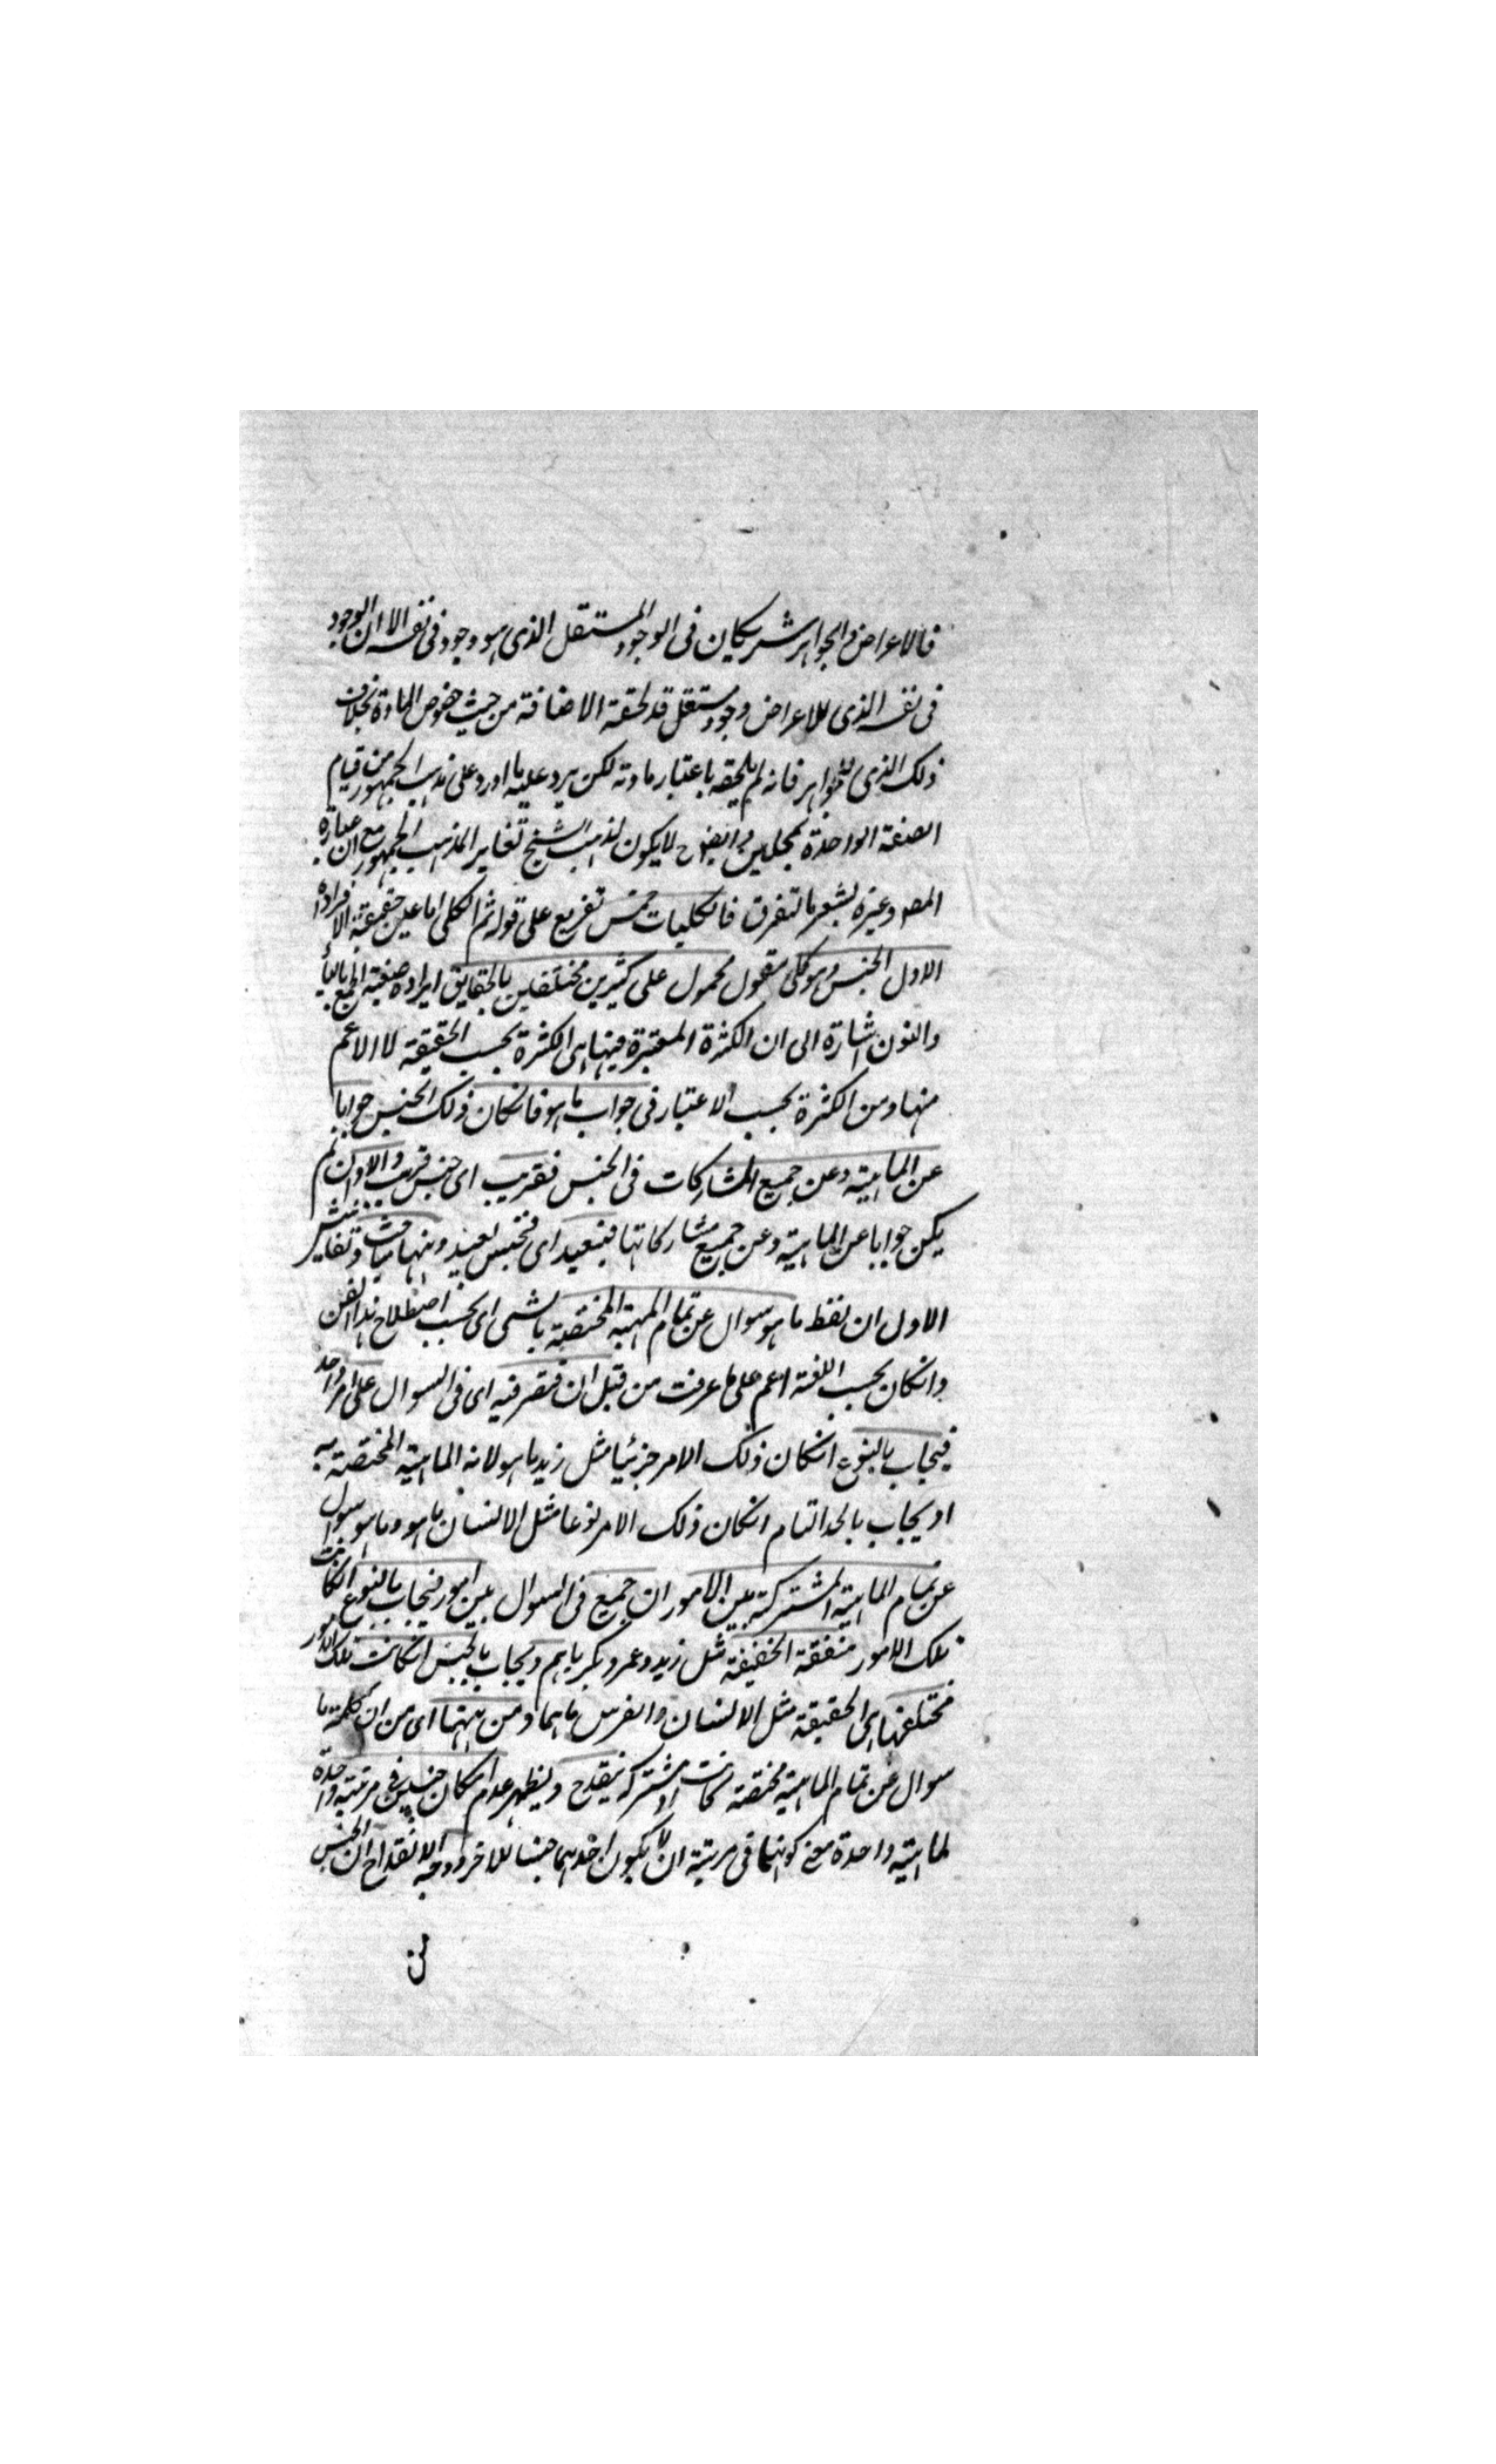 فالاعراض والجواهر شريكان فى الوجود المستقل الذى هو وجود فى نفسه الا ان الوجود
فى نفسه الذى للاعراض وجود مستقل قد لحقته الاضافة من حيث خصوص المادة بخلاف
ذلك الذى للجواهر فانه لم يلحقه باعتبار مادته لكن يرد عليه ما اورد على مذهب الجمهور من قيام
الصفة الواحدة بمحلين وايضا ح لا يكون لمذهب الشيخ تغاير المذهب الجمهور مع ان عبارة
المصـ وغيره يشعر بالتفرق فالكليات خمس تفريع على قوله ثم الكلى اما عين حقيقة الافراد اه
الاول الجنس وهو كلى مقول محمول على كثيرين مختلفين بالحقايق ايراده صيغة الجمع بالياء
والنون اشارة الى ان الكثرة المعتبرة فيها هى الكثرة بحسب الحقيقة لا الاعم
منها ومن الكثرة بحسب الاعتبار فى جواب ما هو فانكان ذلك الجنس جوابا
عن الماهية وعن جميع المشاركات فى الجنس فقريب اى جنس قريب والا وان لم
يكن جوابا عن الماهية وعن جميع مشاركاتها فبعيد اى فجنس بعيد وههنا مباحث وتفتيش
الاول ان لفظ ما هو سوال عن تمام المهية المختصة بالشى اى بحسب اصطلاح هذا الفن
وانكان بحسب اللغة اعم على ما عرفت من قبل ان اقتصر فيه اى فى السوال على امر واحد
فيجاب بالنوع انكان ذلك الامر جزئيا مثل زيد ما هو لانه الماهية المختصة به
او يجاب بالحد التام انكان ذلك الامر نوعا مثل الانسان ما هو وما هو سوال
عن تمام الماهية المشتركة بين الامور ان جميع فى السوال بين امور فيجاب بالنوع انكانت
تلك الامور متفقة الحقيقة مثل زيد وعمرو وبكر ما هم ويجاب بالجنس انكانت تلك الامور
مختلفتها اى الحقيقة مثل الانسان والفرس ما هما ومن ههنا اى من ان كلمة ما
سوال عن تمام الماهية مختصة كانت او مشتركة ينقدح ويظهر عدم امكان جنسين فى مرتبة واحدة
لماهية واحدة معنى كونهما فى مرتبة ان لا يكون احدهما جنسا للاخر ووجه الانقداح ان الجنس